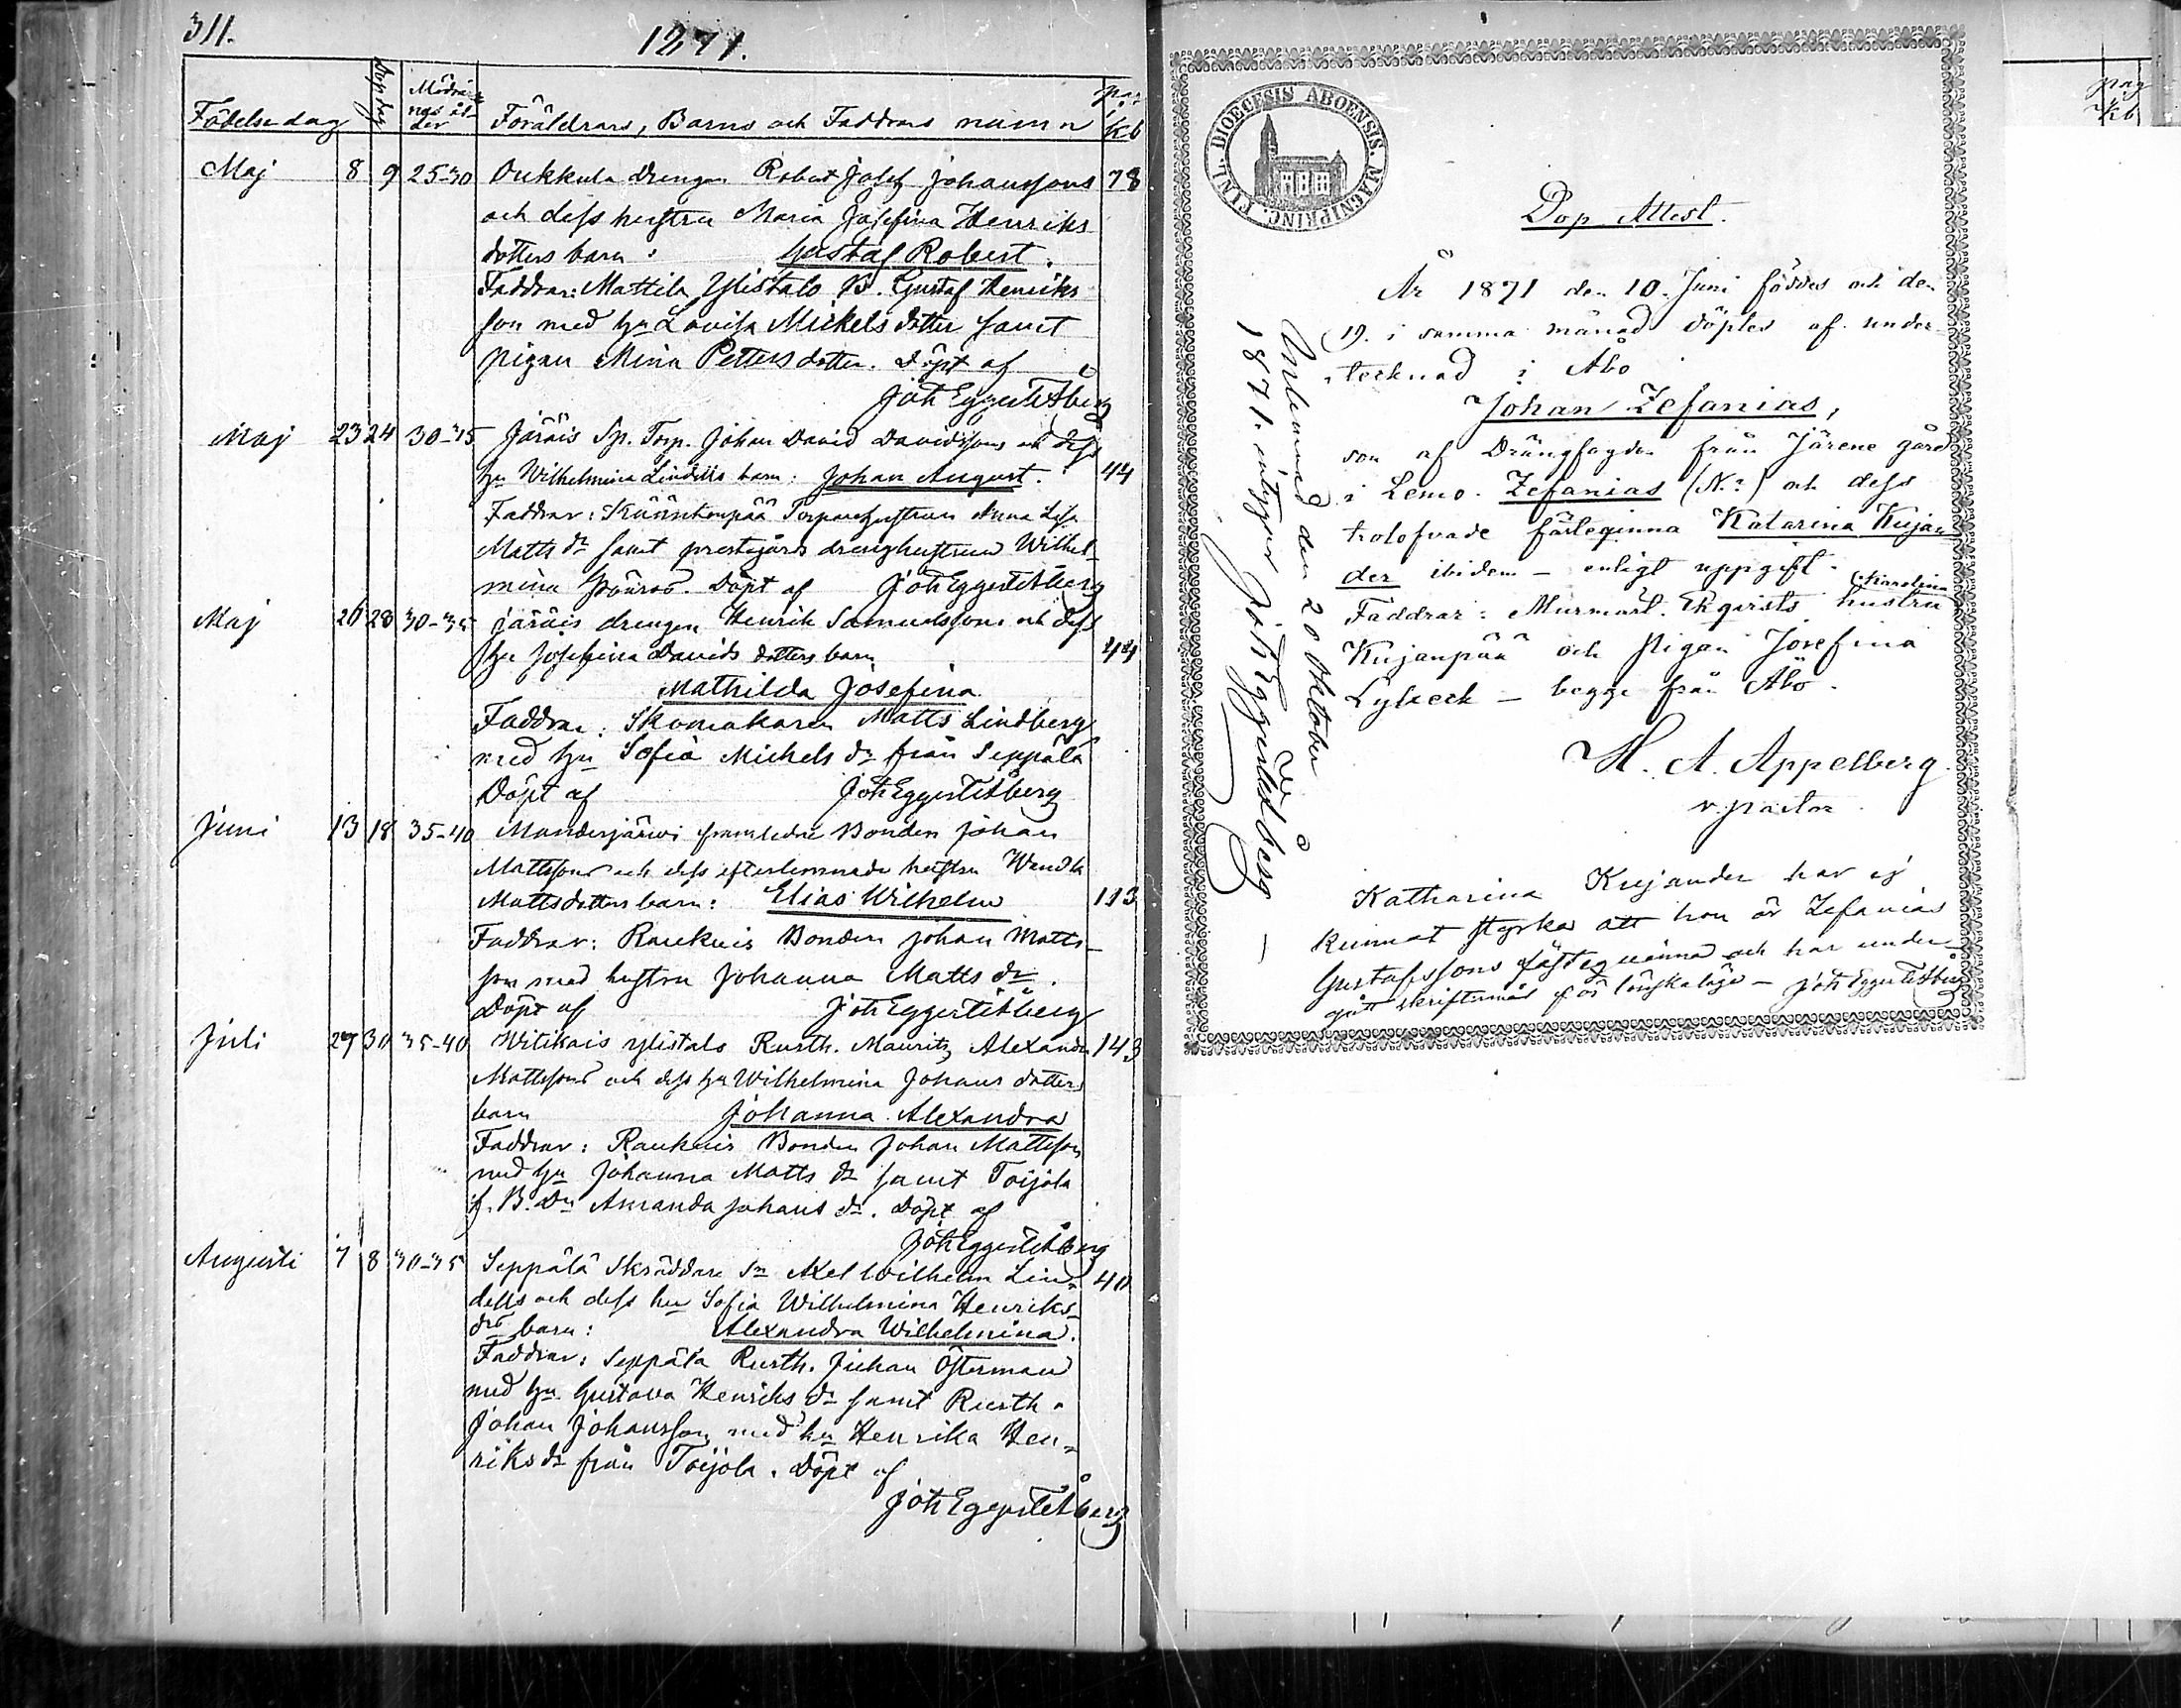 311.
1871.
Födelsedag
Döp dag
Mödrar-
nas ål-
der
Föräldrars, Barns och Faddrars namn
pag
i
Kb
Maj 8 9 25-30 Oukkula drengen Robert Josef Johanssons 78
och dess hustru Maria Josefina Henriks
dotters barn: Gustaf Robert.
Faddrar: Mattila Ylistalo B. Gustaf Henriks
son med hu Lovisa Mickels dotter samt
pigan Mina Petters dotter. Döpt af
Joh Eggert Åberg
Maj 23 24 30-35 Järäis Sp. Torp. Johan David Davidssons och dess
hu Wilhelmina Lindells barn: Johan August. 44
Faddrar: Torpare hustrun Anna Lisa
Matts dr samt prestgårds drenghustrun Wilhel-
mina. Döpt af Joh Eggert Åberg
Maj 26 28 30-35 Järäis drengen Henrik Samuelssons och dess
hu Josefina Davids dotters barn 44
Mathilda Josefina
Faddrar: Skomakaren Matts Lindberg
med hu Sofia Michels dr från Seppälä
Döpt af Joh Eggert Åberg
Juni 13 18 35-40 Manderjärwi framledne Bonden Johan
Mattssons och dess efterlemnade hustru Wendla
Mattsdotters barn: Elias Wilhelm 113
Faddrar: Raukuis Bonden Johan Matts-
son med hustru Johanna Matts dr.
Döpt af Joh Eggert Åberg
Juli 29 30 35-40 Witikais Ylistalo Rusth. Mauritz Alexander 143
Mattssons och dess hu Wilhelmina Johans dotters
barn Johanna Alexandra
Faddrar: Raukuis Bonden Johan Mattsson
med hu Johanna Matts dr samt Toijola
f. B. Dr Amanda Johans dr. Döpt af
Joh Eggert Åberg
Augusti 7 8 30-35 Seppälä Skräddare Sn Axel Wilhelm Lin- 40
dells och dess hu Sofia Wilhelmina Henriks-
drs barn: Alexandra Wilhelmina.
Faddrar: Seppälä Rusth. Johan Österman
med hu Gustava Henriks dr samt Rusth.
Johan Johansson med hu Henrika Hen-
riks dr från Toijola. Döpt af
Joh Eggert Åberg
DIOECESIS ABOENSIS. MAGNIPRINC. FINL.
Dop Attest.
År 1871 den 10. Juni föddes och den
19. i samma månad döptes af under-
tecknad i Åbo
Johan Zefanias,
son af Drängfogden från Järene gård
i Lemo. Zefanias (N.?) och dess
trolofvade fästeqinna Katarina Kujan-
der ibidem - enligt uppgift.
Faddrar: Murmäst. Ekqvists hustru Karolina
Kujanpää och Pigan Josefina
Lybeck - begge från Åbo.
H. A. Appelberg
v. pastor
Katharina Kujander har ej
kunnat styrka att hon är Zefanias
Gustafssons fästeqvinna och har under-
gått skriftermål för lönskaläge - Joh Eggert Åberg
Anlemnad den 20 Oktober
1871. intygar Joh Eggert Åberg
pag
Kb